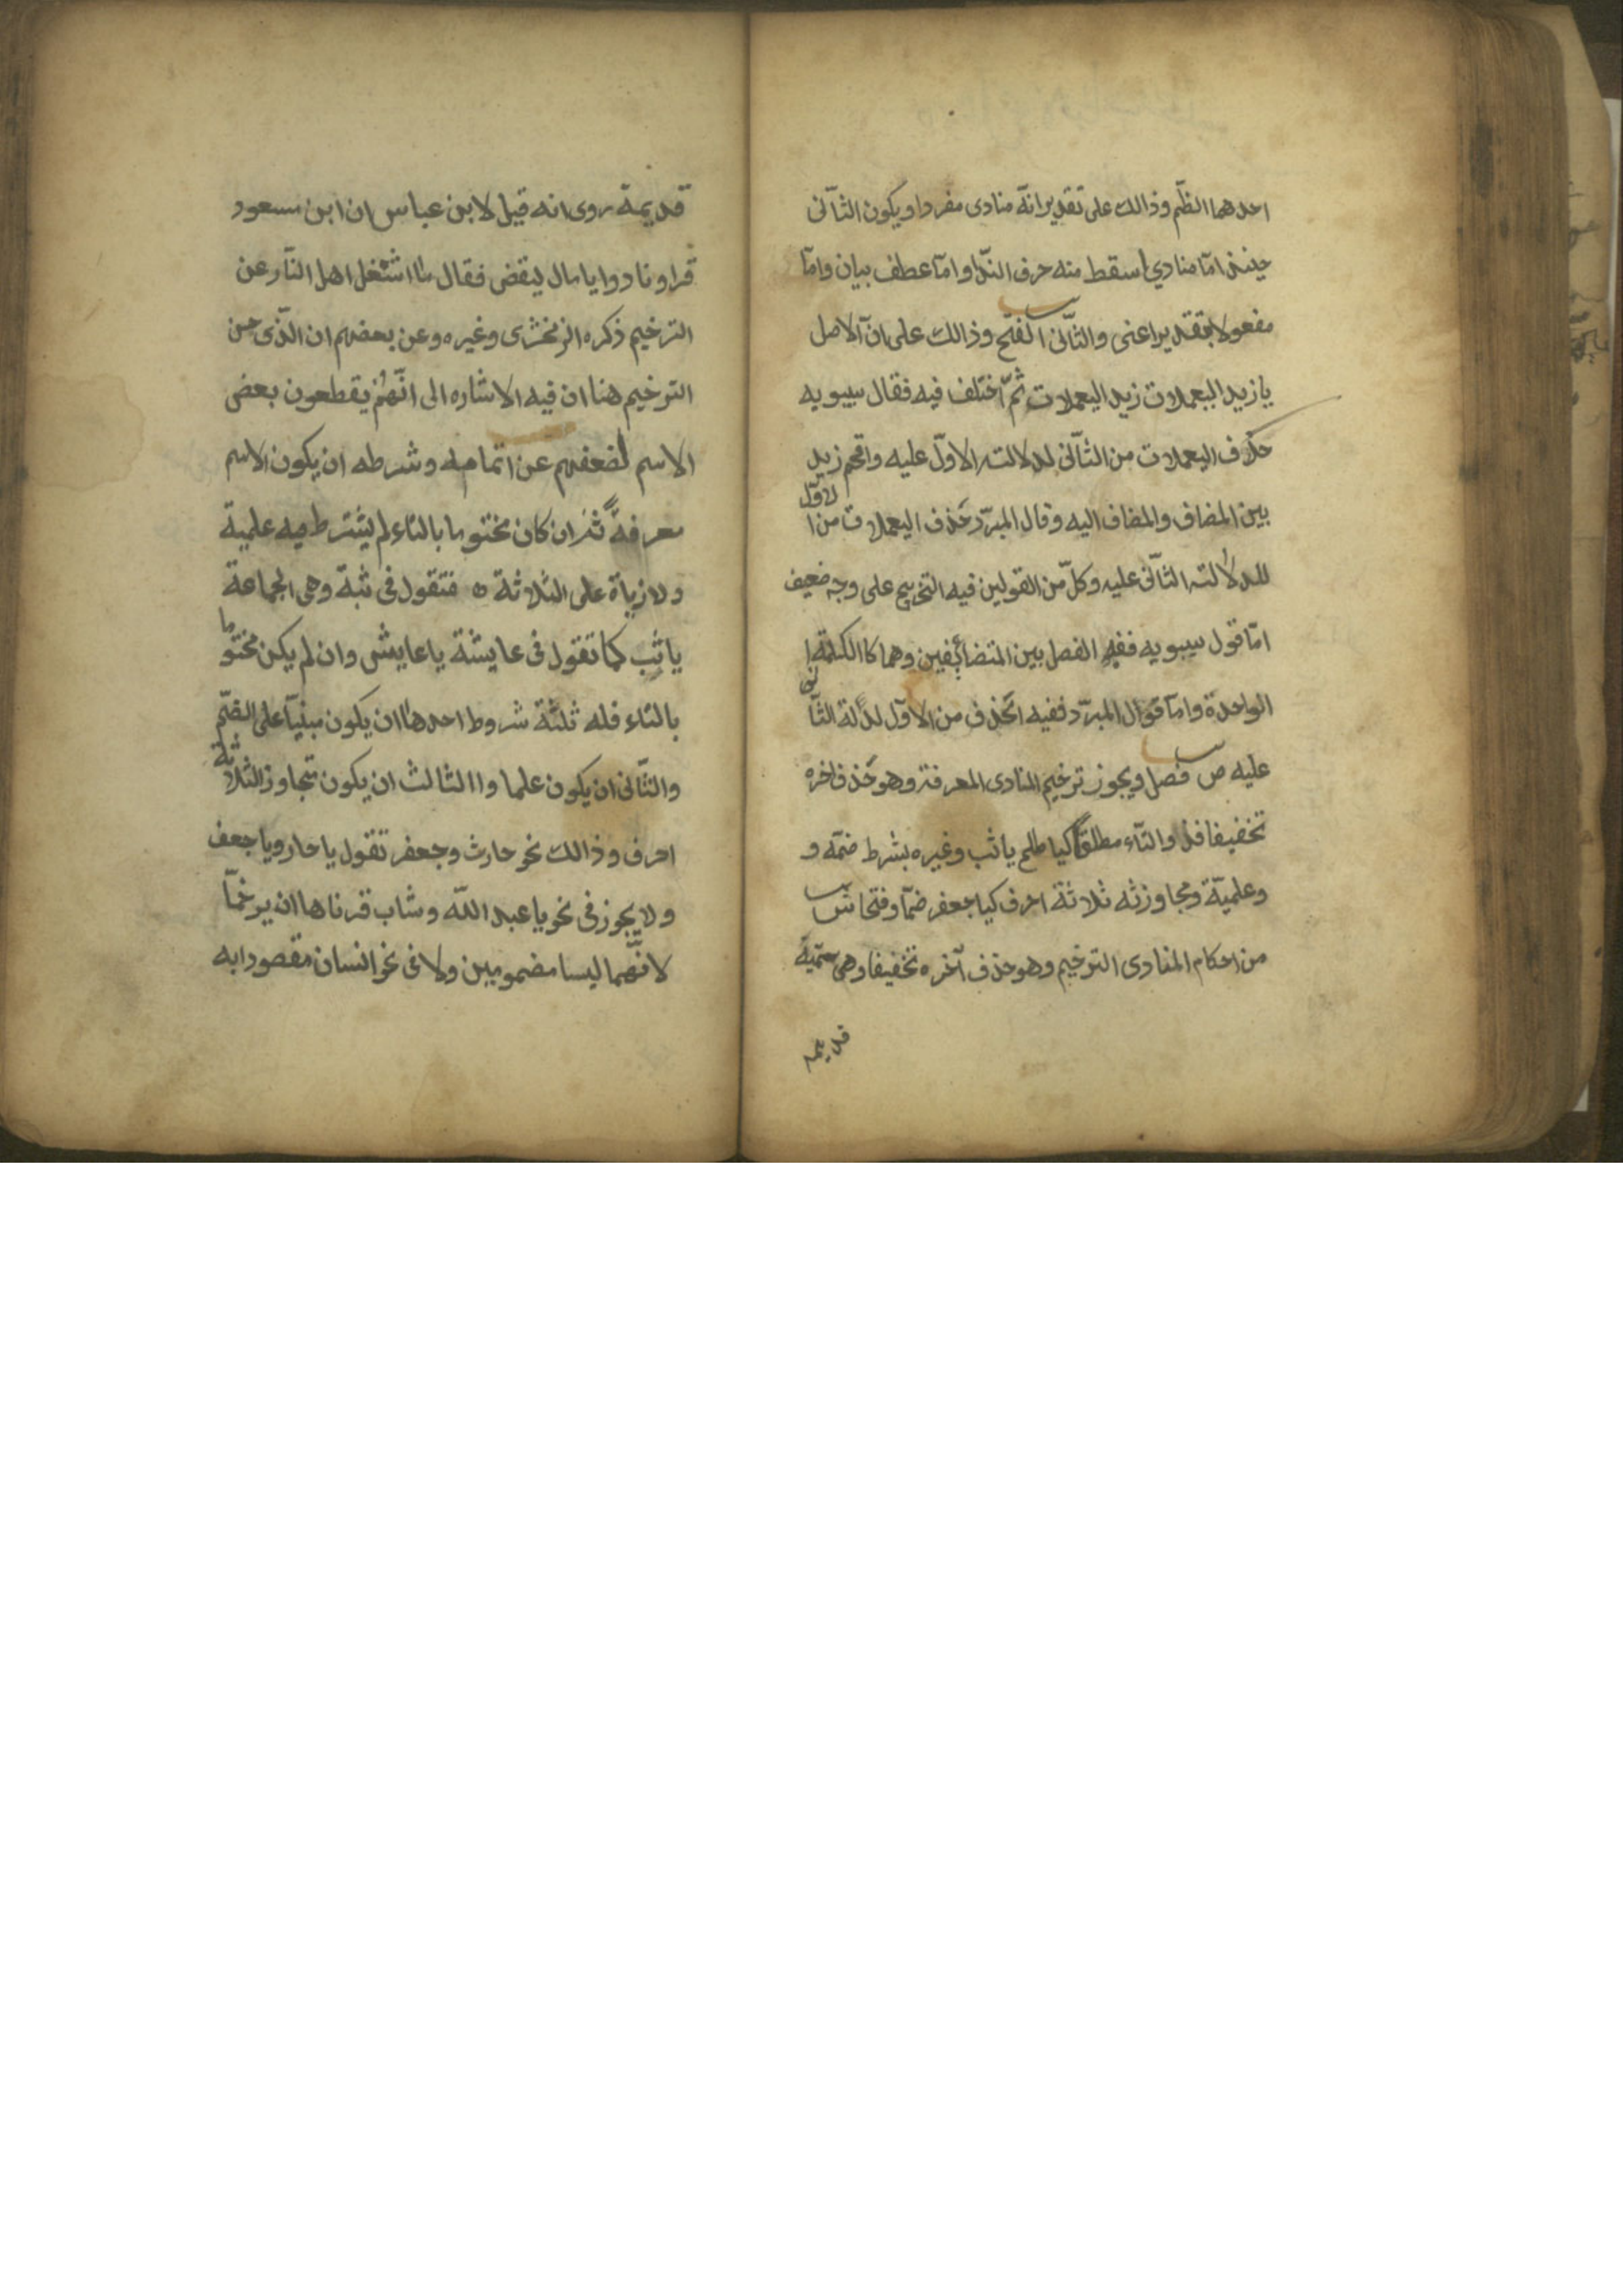 احدهما الظّم وذالك على تقديرانّه منادى مفردا ويكون الثّانى
حينئذ امّا منادي اسقط منه حرف النّدا وامّا عطف بيان وامّا
مفعولا بتقدير اعنى والثّانى الفتح وذالك على انّ الاصل
يا زيد اليعملات زيد اليعملات ثمّ اختلف فيه فقال سيبويه
حذف اليعملات من الثّانى لدلالته الاوّل عليه واقحم زيد
بين المضاف والمضاف اليه وقال المبرّد حذف اليعملات من الاوّل
للدلالته الثّانى عليه وكلّ من القولين فيه التخريج على وجه ضعيف
امّا قول سيبويه ففيه الفصل بين المتضائفين وهما كا الكلمة ا
الواحدة وامّا قول المبرّد ففيه الحذف من الاوّل لدلة الثّانى
عليه ص فصل ويجوز ترخيم المنادى المعرفة وهو حذف اخره
تخفيفا فذ والتّاء مطلقا كيا طلح يا ثب وغيره بشرط ضمّه و
وعلميّة ومجاوزته ثلاثة احرف كيا جعفر ضمّا وفتحا ش
من احكام المنادى الترخيم وهو حذف آخره تخفيفا وهى تسميّة
قديمه
قديمة روى انه قيل لابن عباس ان ابن مسعود
قرا ونادوا يا مال ليقض فقال ما اشغل اهل النّار عن
الترخيم ذكره الزمخشرى وغيره وعن بعضهم ان الّذى حسن
الترخيم هنا ان فيه الاشاره الى انّهم يقطعون بعض
الاسم لضعفهم عن اتمامه وشرطه ان يكون الاسم
معرفةً ثمّ ان كان مختوما بالتاء لم يشترط فيه علمية
ولا زياة على الثلاثة ه فتقول فى ثبة وهى الجماعة
يا ثب كما تقول فى عايشة يا عايش وان لم يكن مختوما
بالتاء فله ثلثة شروط احدها ان يكون مبنيّا على الضّم
والثّانى ان يكون علما واالثالث ان يكون تتجاوز الثلاثة
احرف وذالك نحو حارث وجعفر تقول يا حار ويا جعف
ولا يجوز فى نحو يا عبد اللّه وشاب قرناها ان يرخمّا
لانّهما ليسا مضمومين ولا فى نحو انسان مقصودا به